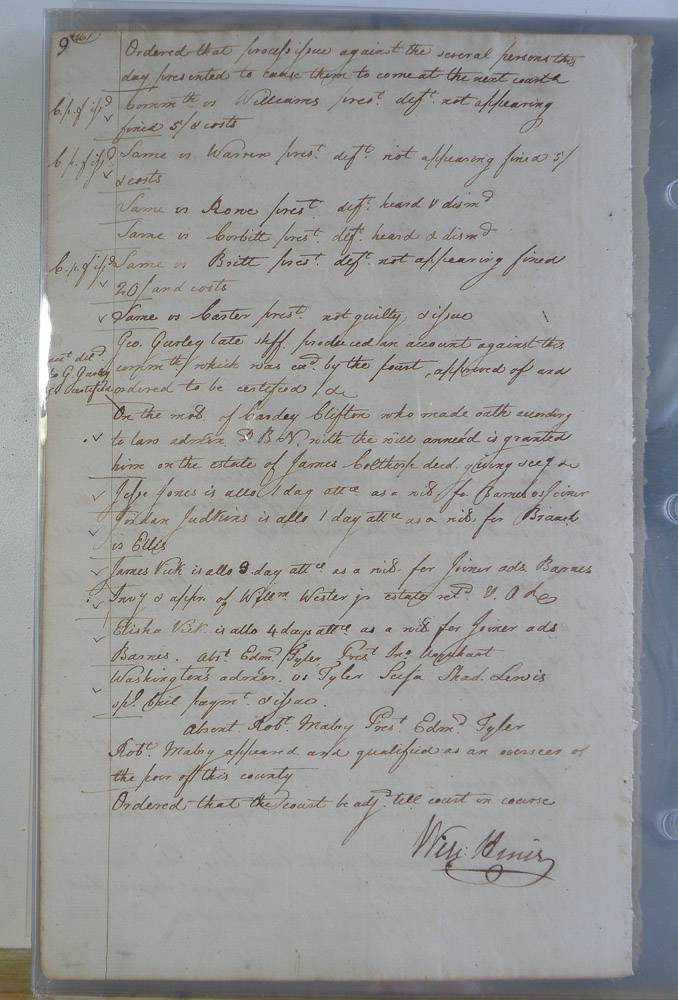 9
Ordered that process issue against the several persons this
day presented to cause them to come at the next court &
C. p. f issd Commth vs Williams prest. deft. not appearing
fined 5/ & costs
C. p. f issd Same vs Warren prest. deft. not appearing fined 5/
& costs
Same vs Rowe prest. deft. heard & dismd
Same vs Corbitt prest. deft. heard & dismd
C. p. f issd Same vs Britt prest. deft. not appearing fined
20/ and costs
Same vs Carter prest. not guilty & issue
Geo. Gurley late shff. produced an account against this
commth/ which was exd. by the court, approved of and
ordered to be certified /&c
On the mo. of Cordey Clifton who made oath according
to law admön D B N, with the will annexed is granted
him on the estate of James Colthorp decd. giving secy &c
Jesse Jones is allo 1 day attce as a wit. for Barnes vs Joiner
Jordan Judkins is allo 1 day attce as a wit. for Branch
vs Ellis
James Vick is allo 3 day attce as a wit. for Joiner ads. Barnes
Invy & appr. of Willm. Wester jr estate retd. & O R
Elisha Vick is allo 4 days attce as a wit. for Joiner ads
Barnes. abst. Edmd. Tyler, Prest. Jno. Urquhart
Washington's admor. vs Tyler Shad. Lewis
spl. bail paymt. & issue.
absent Robt. Mabry Prest. Edmd. Tyler
Robt. Mabry appeared and qualified as an overseer of
the poor of this county
Ordered that the court be adjd. till court in course
Will: